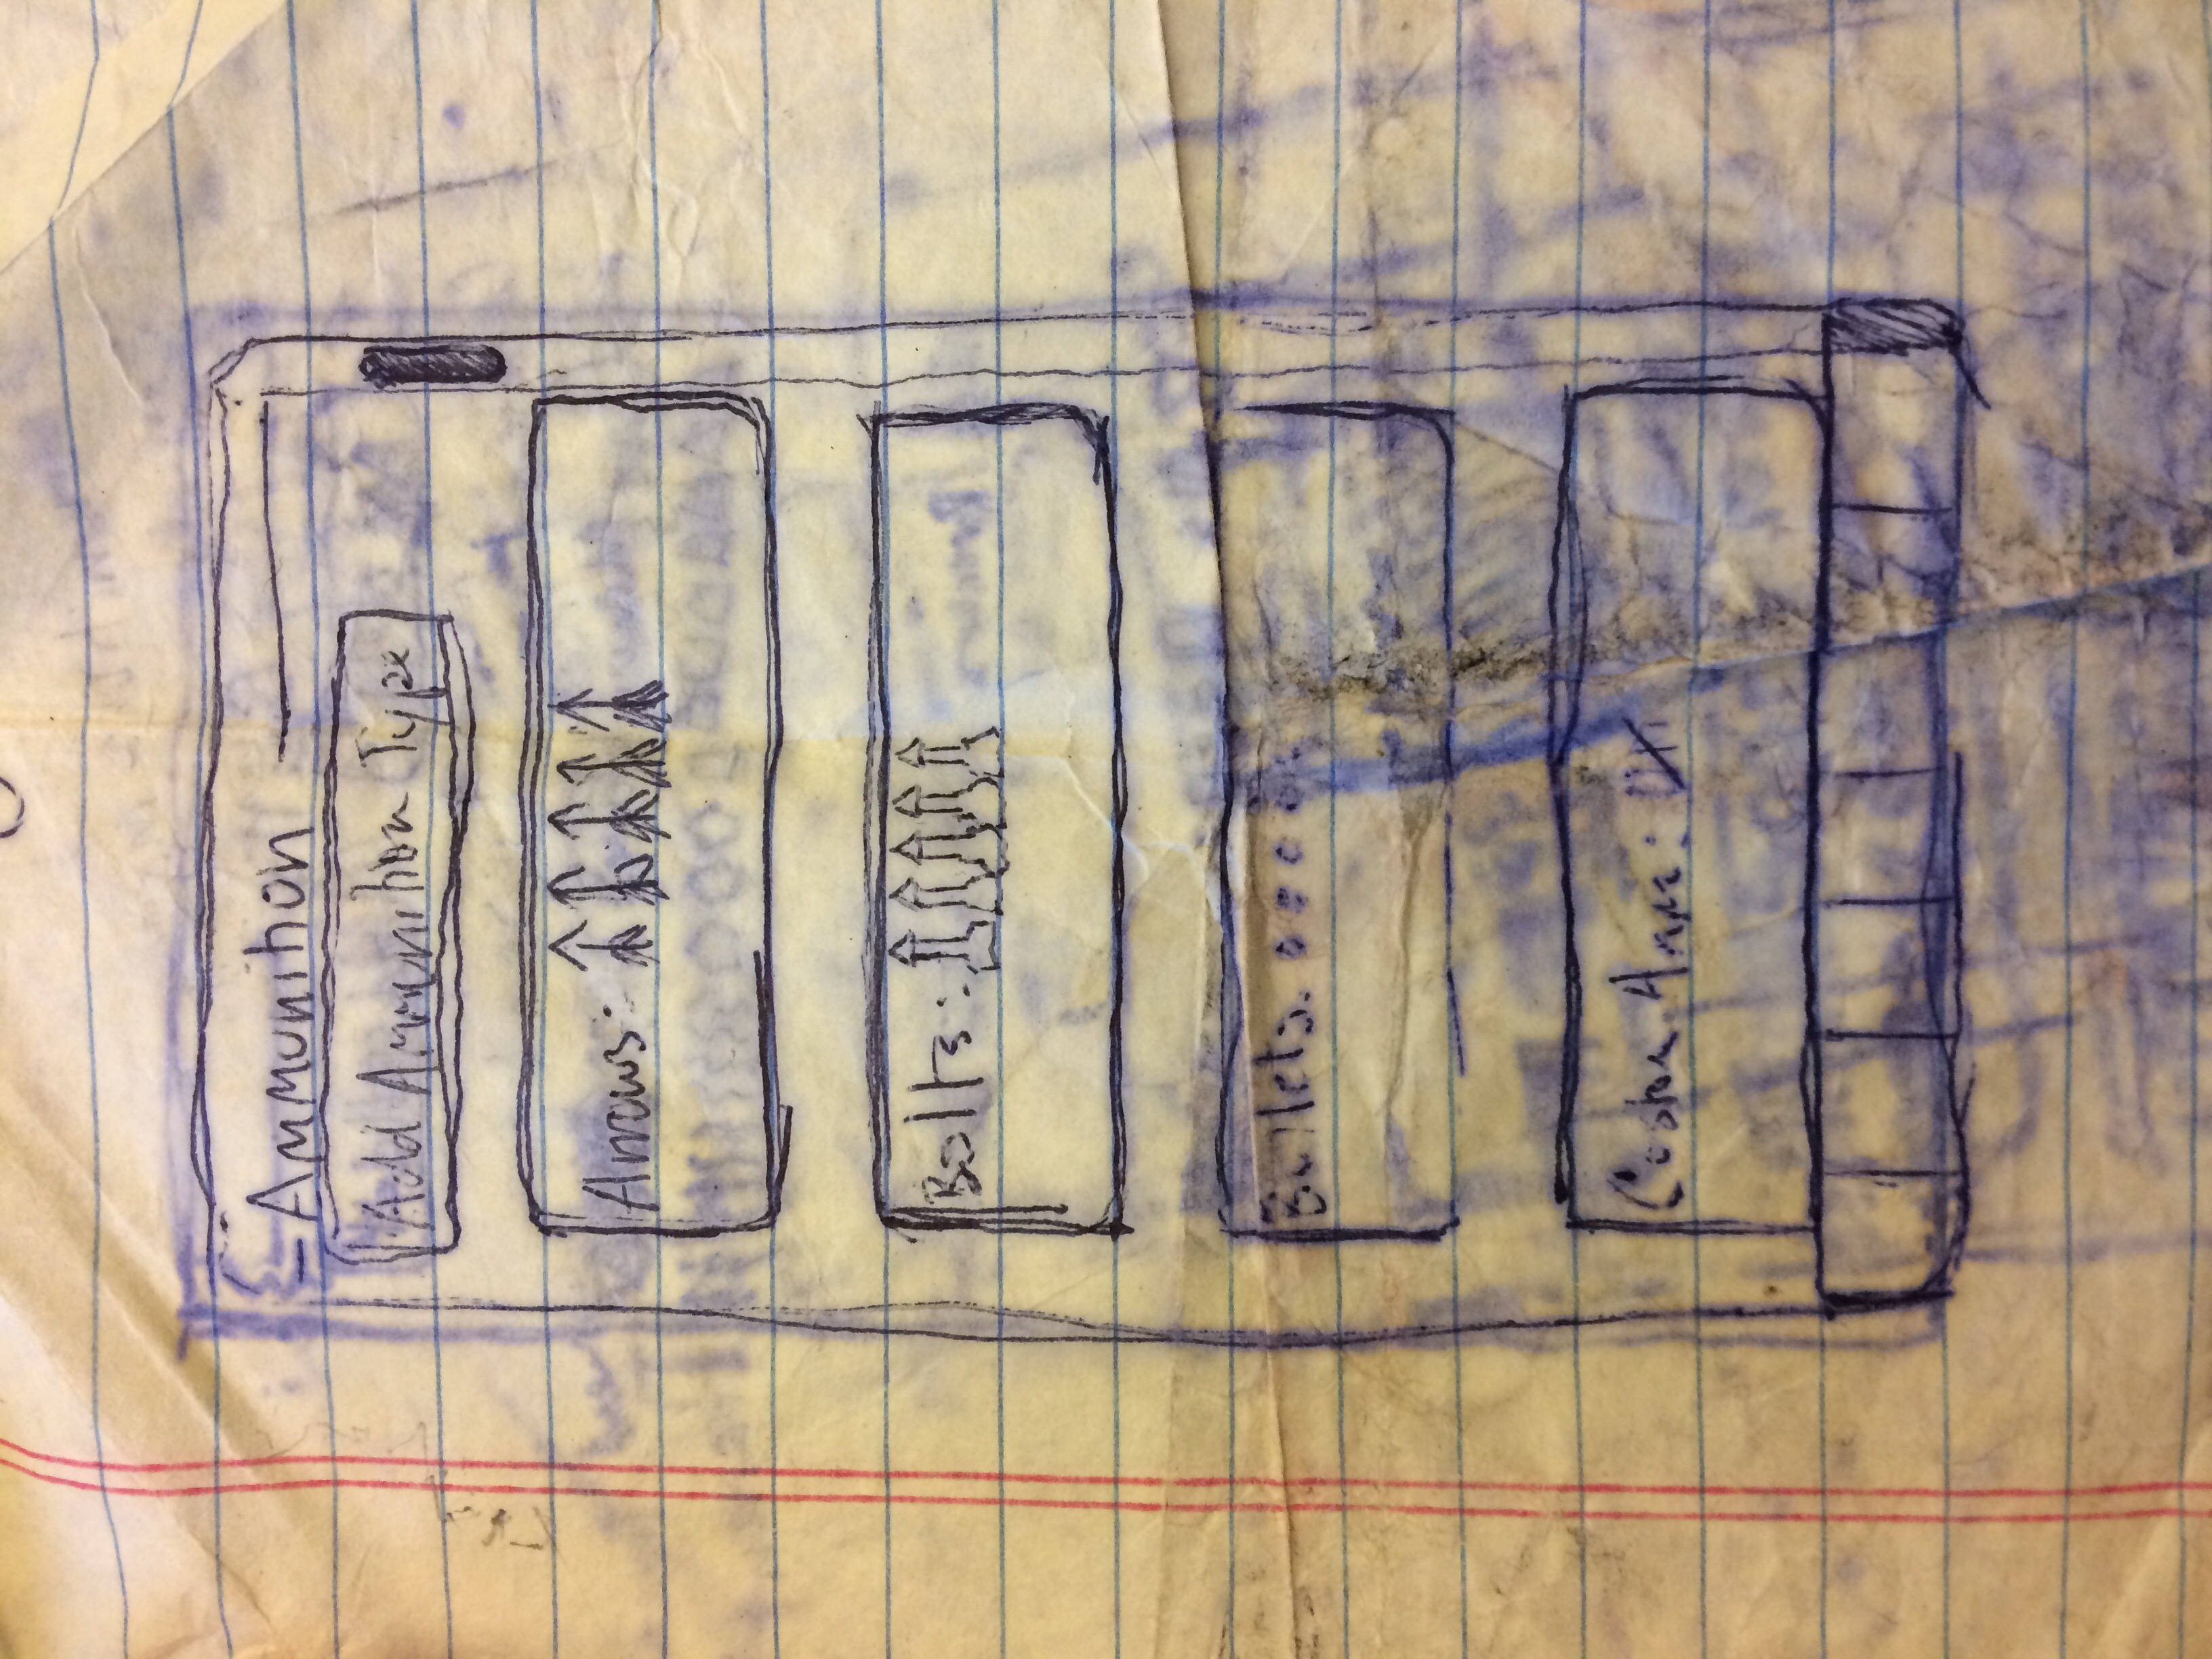 Ammunition
Add Ammunition Type
Arrows:
Bolts:
Bullets:
Custom Ammo: